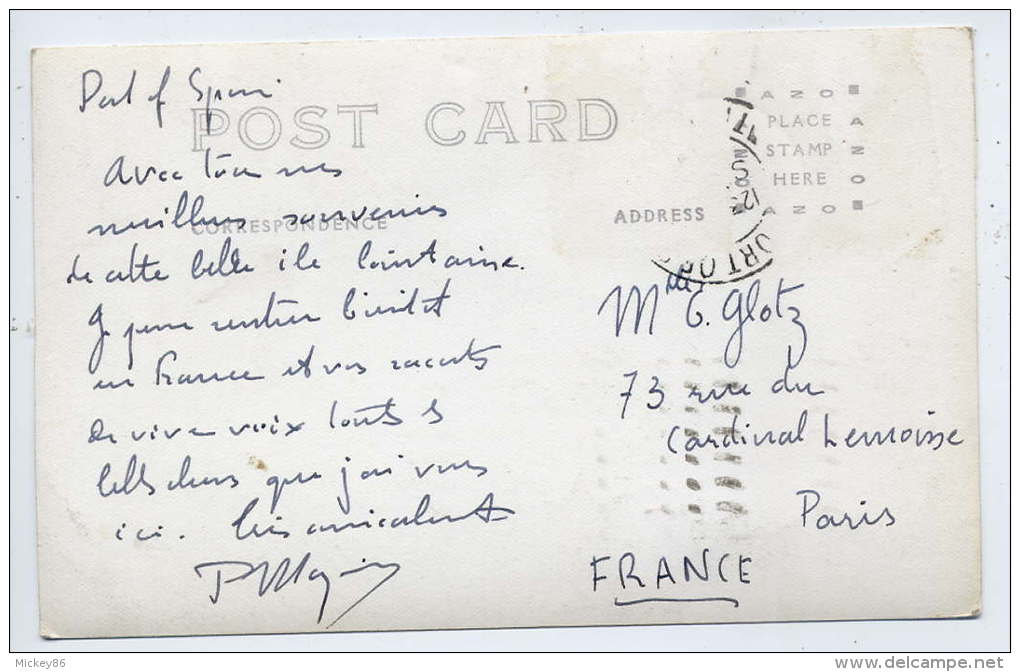 Port of Spain
POST CARD
Avec tous mes
meilleurs souvenirs
CORRESPONDENCE
de cette belle ile lointaine.
Je pense rentrer bientôt
en France et vos raconts
de vive voix toutes
belles choses que j'ai vues
ici. Très amicalement
AZO
PLACE
STAMP
HERE
AZO
AZO
ADDRESS
ORT O
Mlle G. Glotz
73 rue du
Cardinal Lemoisse
Paris
FRANCE
Mickey86
www.delcampe.net